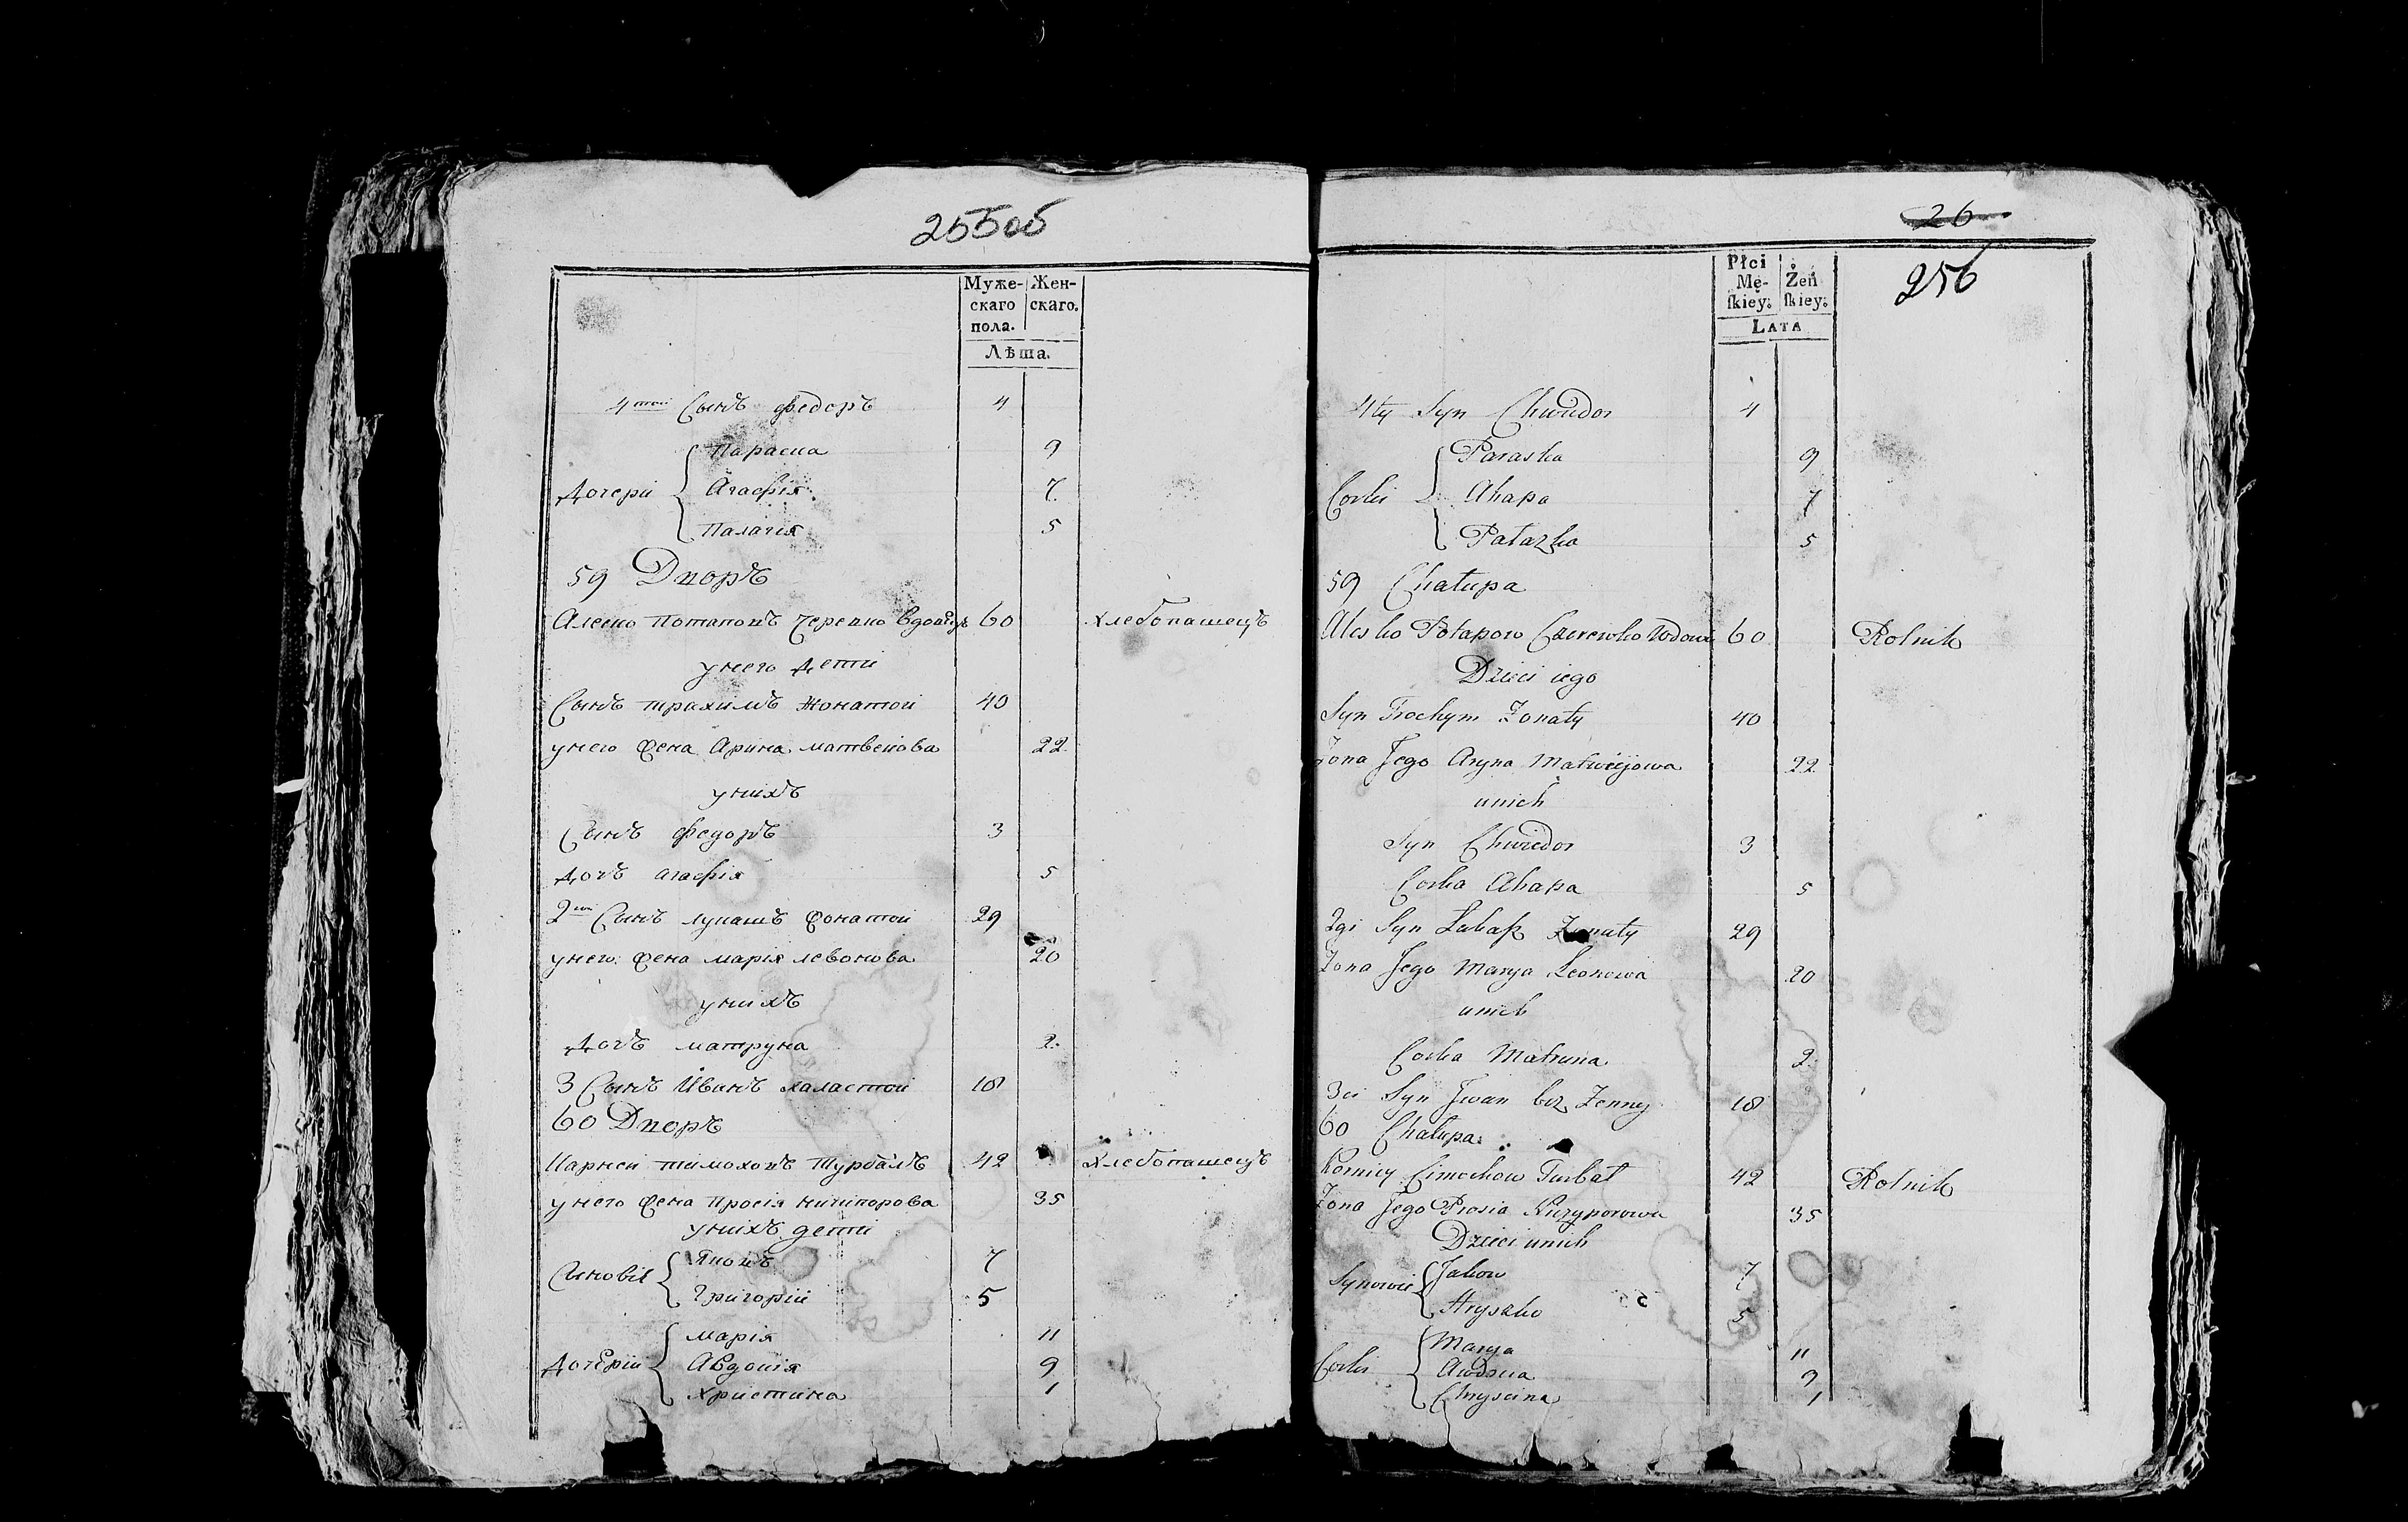 255об
Муже-
скаго
пола.
Жен-
скаго.
Лѣта.
4той Сынъ федоръ 4
Дочери
Параска 9
Агафія 7
Палагія 5
59 Дворъ
Алеско Потаповъ Черевко вдовецъ 60 хлебопашецъ
у него дети
Сынъ трахимъ жонатой 40
у него жена Арина матвеюва 22
у нихъ
Сынъ федоръ 3
дочъ агафія 5
2ой Сынъ лукашъ жонатой 29
у него жена марія левонова 20
у нихъ
дочъ матруна 2
3 Сынъ Иванъ халастой 18
60 Дворъ
Карней тимоховъ Турбалъ 42 хлебопашецъ
у него жена Просія ничипорова 35
у нихъ дети
Синовія
Яковъ 7
Григорій 5
дочерии
марія 11
Авдотія 9
христина 1
26
256
Płci
Mę-
ſkiey:
Żeń
ſkiey:
LATA
4ty Syn Chwiedor 4
Corki
Paraska 9
Ahapa 7
Pałazka 5
59 Chałupa
Alesko Potapow Czerewko Wdowiec 60 Rolnik
Dzieci iego
Syn Trochym Żonaty 40
Żona Jego Aryna Matwiejowa 22
u nich
Syn Chwiedor 3
Corka Ahapa 5
2gi Syn Łukasz Żonaty 29
Żona Jego Marya Leonowa 20
u nich
Corka Matruna 2
3ci Syn Jwan bez Żenny 18
60 Chałupa
Korniey Cimochow Turbał 42 Rolnik
Żona Jego Prosia Niczyporowa 35
Dzieci u nich
Synowie
Jakow 7
Hryszko 5
Corki
Marya 11
Awdocia 9
Chryscina 1